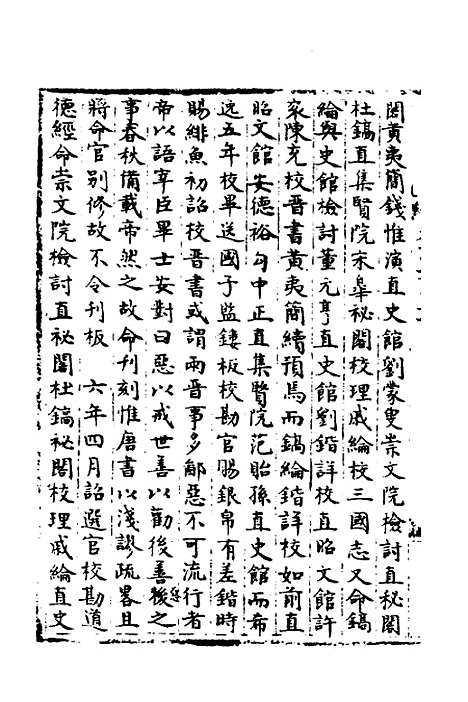 閣黃夷簡錢惟演直史館劉蒙叟崇文院檢討直秘閣
杜鎬直集賢院宋皐祕閣校理戚綸校三國志又命鎬
綸與史館檢討董元亨直史館劉鍇詳校直昭文館許
衮陳充校晉書黃夷簡續預焉而鎬綸鍇詳校如前直
昭文館安德裕勾中正直集賢院范貽孫直史館而希
远五年校畢送國子監鏤板校勘官賜銀帛有差鍇時
賜緋魚初詔校晉書或謂兩晉事多鄙惡不可流行者
帝以語宰臣畢士安對曰惡以戒世善以勸後善惡之
事春秋備載帝然之故命刊刻惟唐書以淺謬疏畧且
將命官別修故不令刊板　六年四月詔選官校勘道
德經命崇文院檢討直祕閣杜鎬祕閣校理戚綸直史